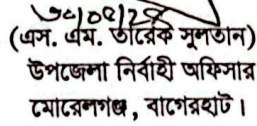 (এস. এম. তারেক সুলতান)
উপজেলা নির্বাহী অফিসার
মোরেলগঞ্জ, বাগেরহাট।